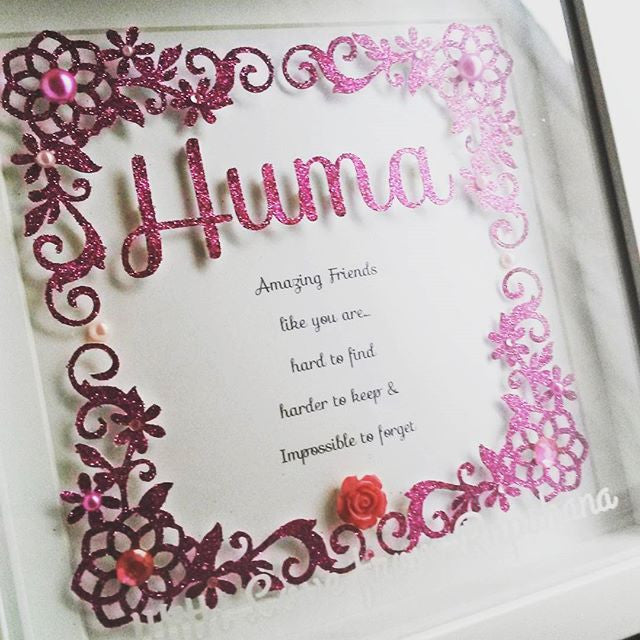 Huma
Amazing Friends
like you are...
hard to find
harder to keep &
Impossible to forget
With Love from